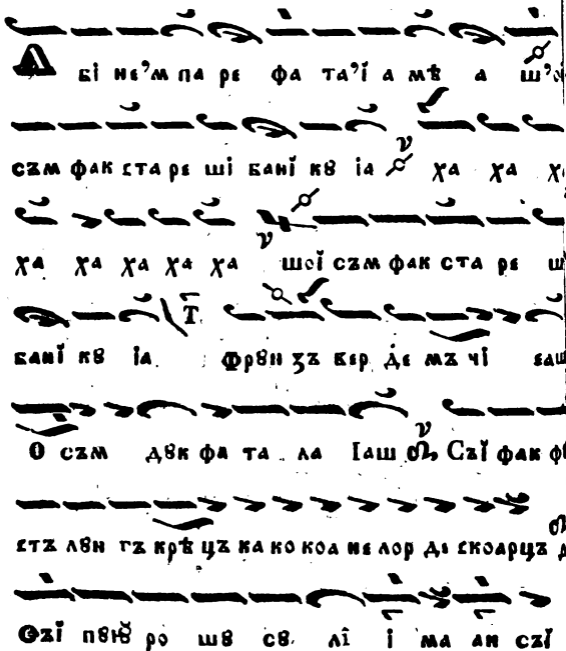 Д бі не’м па ре фа та’ї а мѣ а ш’ої
сꙋм фак ста ре ші банї кꙋ іа ха ха ха
ха ха ха ха ха шої съм фак ста ре ш
банї кꙋ іа Фрꙋн зъ вер де мъ чі еаш
О съм дꙋк фа та ла Іаш Съї фак фꙋ
стъ лꙋн гъ крѣ цъ ка ко коа не лор де скоарцъ
Съї пꙋю ро шꙋ сꙋ лі і ма ан съї